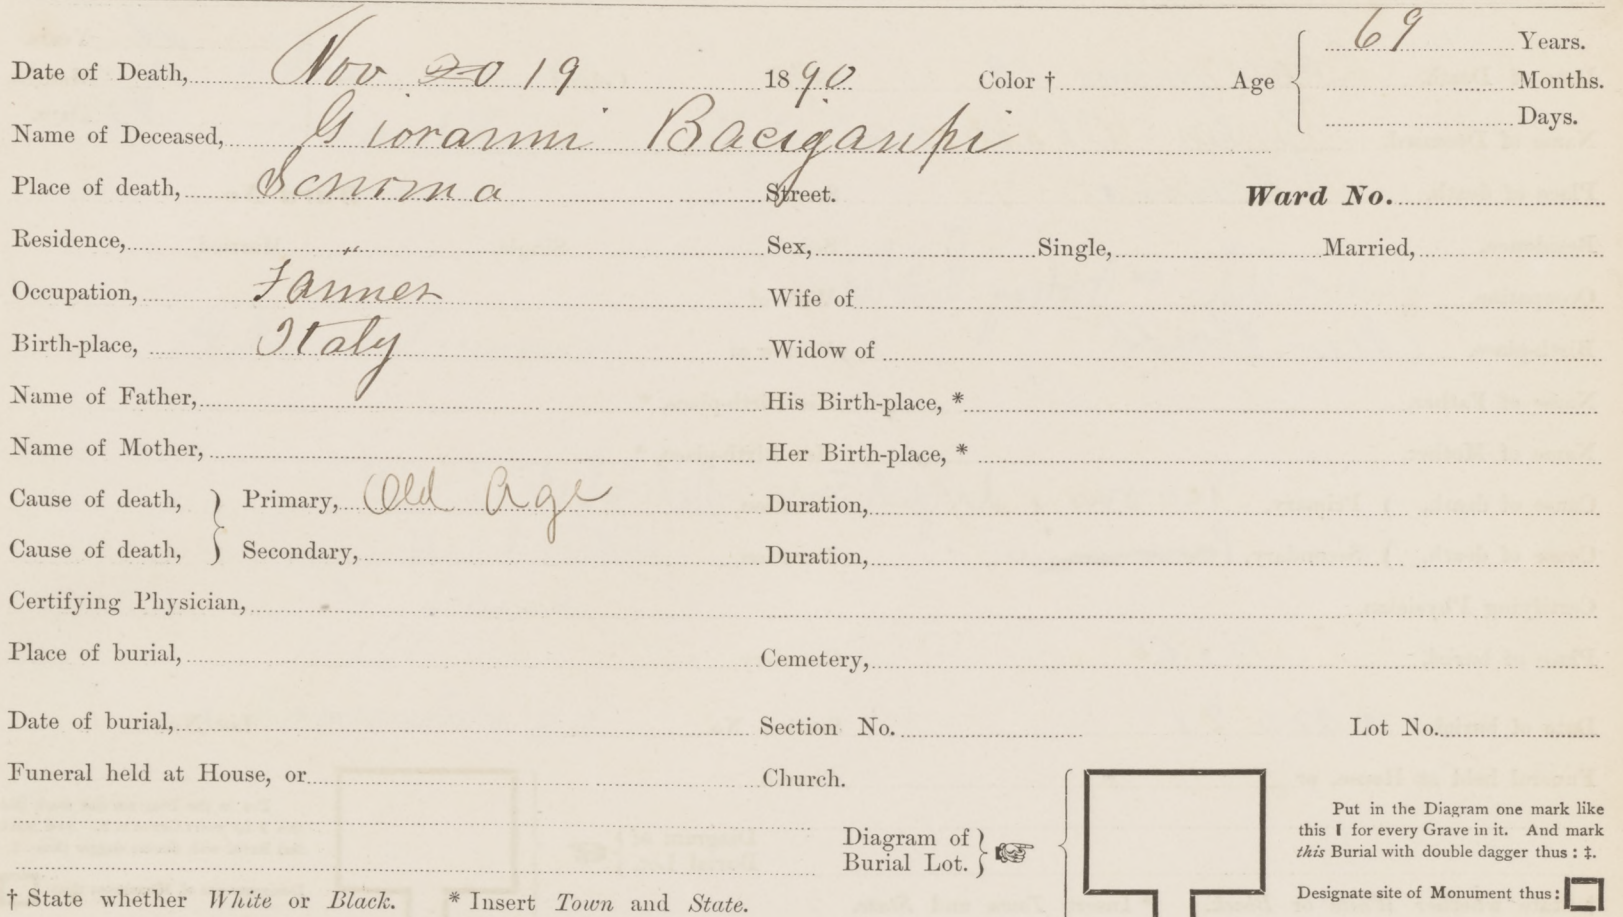 Date of Death, Nov 20 19 1890 Color † Age 69 Years.
Months.
Days.
Name of Deceased, Giovanni Bacigaupi
Place of death, Sonoma Street. Ward No.
Residence, " Sex, Single, Married,
Occupation, Farmer Wife of
Birth-place, Italy Widow of
Name of Father, His Birth-place, *
Name of Mother, Her Birth-place, *
Cause of death, } Primary, Old Age Duration,
Cause of death, } Secondary, Duration,
Certifying Physician,
Place of burial, Cemetery,
Date of burial, Section No. Lot No.
Funeral held at House, or Church.
Diagram of
Burial Lot. }
Put in the Diagram one mark like
this I for every Grave in it. And mark
this Burial with double dagger thus : ‡.
Designate site of Monument thus:
† State whether White or Black. * Insert Town and State.